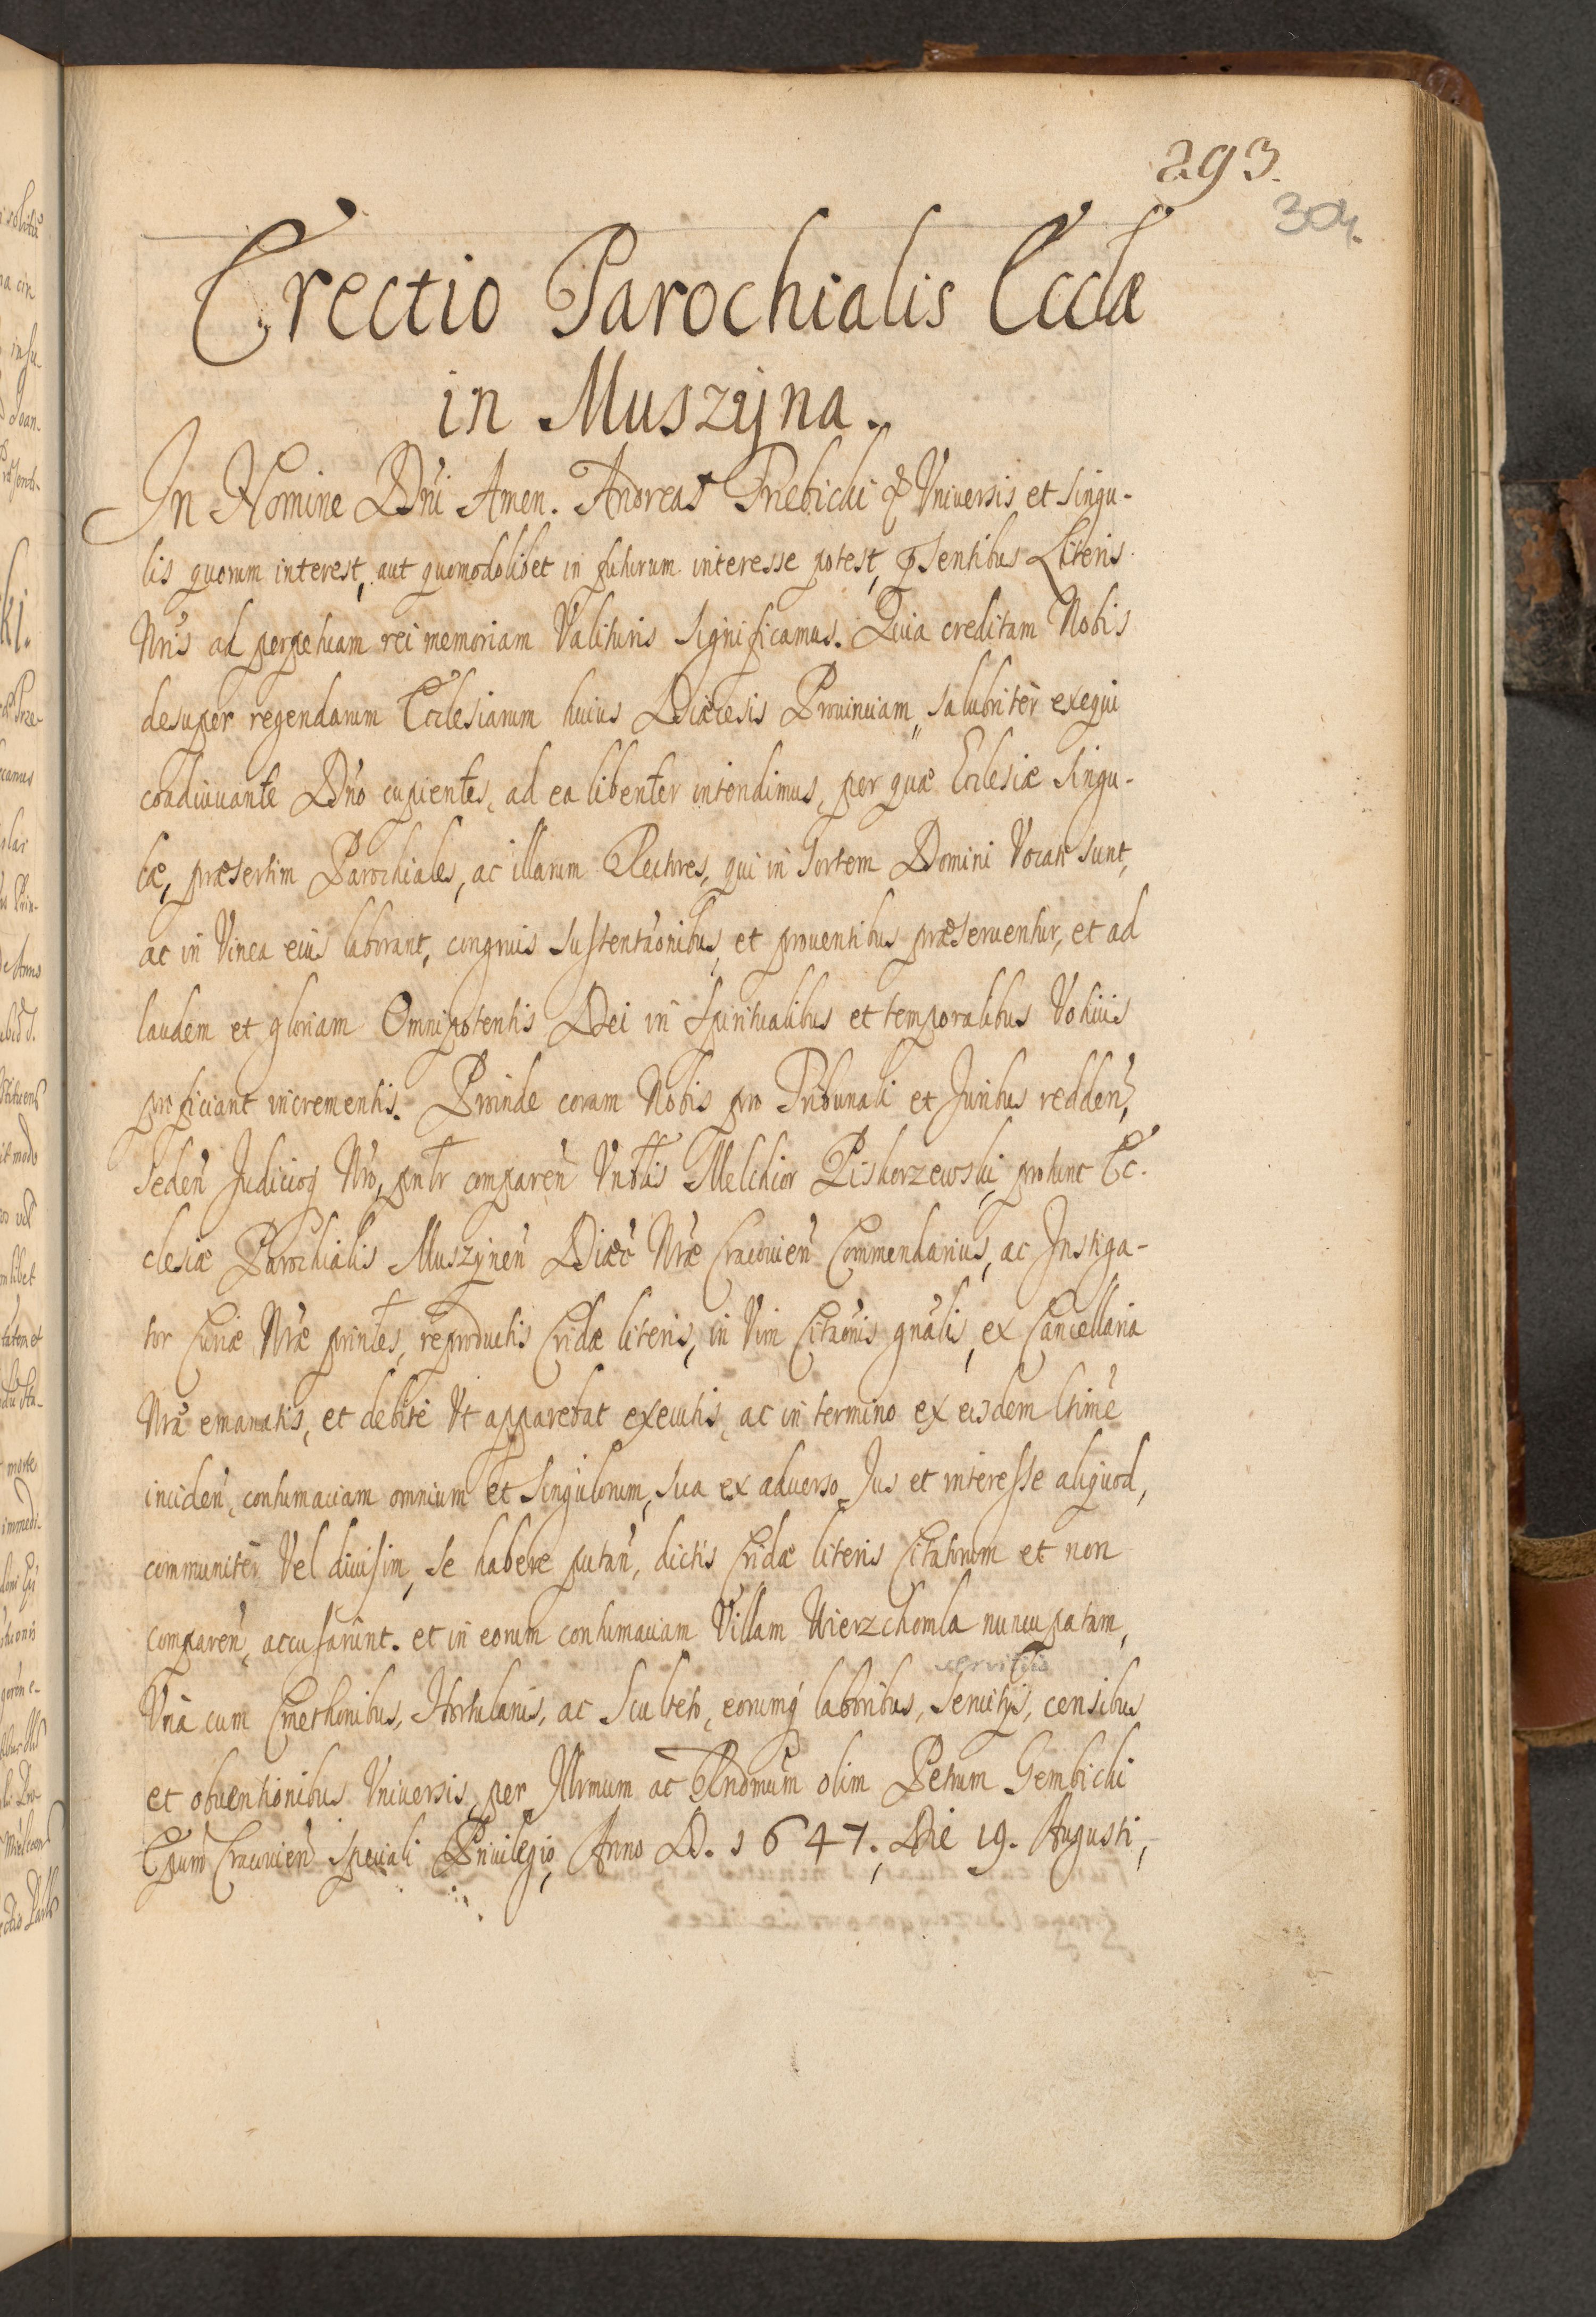 293.
304.
Erectio Parochialis Eccłæ
in Muszyna.
In Nomine Dñi Amen. Andreas Trebicki & Vniuersis et singu-
lis quorum interest, aut quomodolibet in futurum interesse potest, pꝛsentibus Literis
Nr̃is ad perpetuam rei memoriam Valituris significamus. Quia creditam Nobis
desuper regendarum Ecclesiarum huius Diæcesis Prouinciam, salubriter exequi
coadiuuante Dño cupientes, ad ea libenter intendimus, per quæ Ecclesiæ singu-
læ, præsertim Parochiales, ac illarum Rectores, qui in sortem Domini Vocati sunt,
ac in Vinea eius laborant, congruis sustentãonibus, et prouentibus præseruentur, et ad
laudem et gloriam Omnipotentis Dei in Spiritualibus et temporalibus Votiuis
proficiant incrementis. Proinde coram Nobis pro Tribunali et Juribus redden̄,
Seden̄ Judicioq̃ Nr̃o, pñtr comparen̄ Vnbłis Melchior Piskorzewski, protunc Ec-
clesiæ Parochialis Muszynen̄ Diæc̄ Nr̃æ Cracouien̄ Commendarius, ac Instiga-
tor Curiæ Nr̃æ prin̄tes, reproductis Cridæ literis, in Vim Citãonis gñalis, ex Cancellaria
Nr̃a emanatis, et debite Vt apparebat executis, ac in termino ex eisdem ltime
inciden̄, contumaciam omnium et Singulorum, sua ex aduerso Jus et interesse aliquod,
communiter Vel diuisim, se habere putan̄, dictis Cridæ literis Citatorum et non
comparen̄, accusarunt. et in eorum contumaciam Villam Wierzchomla nuncupatam,
Vnà cum Cmethonibus, Hortulanis, ac Sculteto, eorumq́ laboribus, Seruitijs, censibus
servitiis
et obuentionibus Vniuersis, per Illrmum ac Rñdmum olim Petrum Gembicki
Ep̃um Cracouien̄ speciali Priuilegio, Anno D. 1647. Die 19. Augusti,